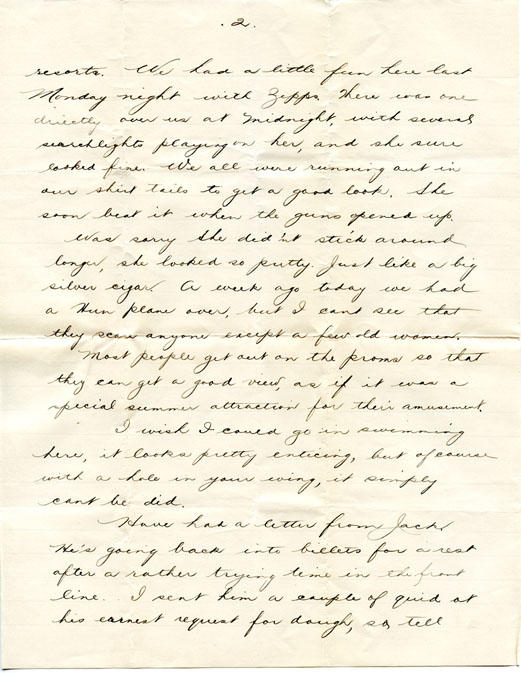 . 2 .
resorts. We had a little fun here last
Monday night with Zepps. There was one
directly over us at midnight, with several
searchlights playing on her, and she sure
looked fine. We all were running out in
our shirt tails to get a good look. She
soon beat it when the guns opened up.
Was sorry she did'nt stick around
longer, she looked so pretty. Just like a big
silver cigar. A week ago today we had
a Hun plane over, but I cant see that
they scare anyone except a few old women.
Most people get out on the proms so that
they can get a good view, as if it was a
special summer attraction for their amusement.
I wish I could go in swimming
here, it looks pretty enticing, but of course
with a hole in your wing, it simply
cant be did.
Have had a letter from Jack.
He's going back into billets for a rest
after a rather trying time in the front
line. I sent him a couple of quid at
his earnest request for dough, so tell